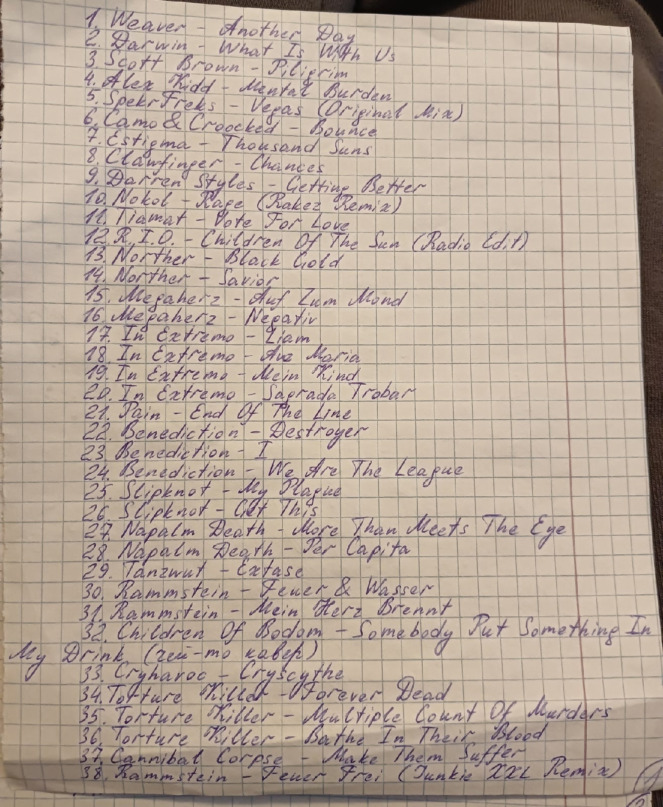 1. Weaver - Another Day
2. Darwin - What Is With Us
3. Scott Brown - Piligrim
4. Alex Kidd - Mental Burden
5. SpekrFreks - Vegas (Original Mix)
6. Camo & Croocked - Bounce
7. Estigma - Thousand Suns
8. Clawfinger - Chances
9. Darren Styles - Getting Better
10. Nokol - Rage (Rakez Remix)
11. Tiamat - Vote For Love
12. R.I.O. - Children Of The Sun (Radio Edit)
13. Norther - Black Gold
14. Norther - Savior
15. Megaherz - Auf Zum Mond
16. Megaherz - Negativ
17. In Extremo - Liam
18. In Extremo - Ave Maria
19. In Extremo - Mein Kind
20. In Extremo - Sagrada Trobar
21. Pain - End Of The Line
22. Benediction - Destroyer
23. Benediction - I
24. Benediction - We Are The League
25. Slipknot - My Plague
26. Slipknot - Get This
27. Napalm Death - More Than Meets The Eye
28. Napalm Death - Per Capita
29. Tanzwut - Extase
30. Rammstein - Feuer & Wasser
31. Rammstein - Mein Herz Brennt
32. Children Of Bodom - Somebody Put Something In
My Drink (чей-то кавер)
33. Cryhavoc - Cryscythe
34. Torture Killer - Forever Dead
35. Torture Killer - Multiple Count Of Murders
36. Torture Killer - Bathe In Their Blood
37. Cannibal Corpse - Make Them Suffer
38. Rammstein - Feuer Frei (Junkie XXL Remix)